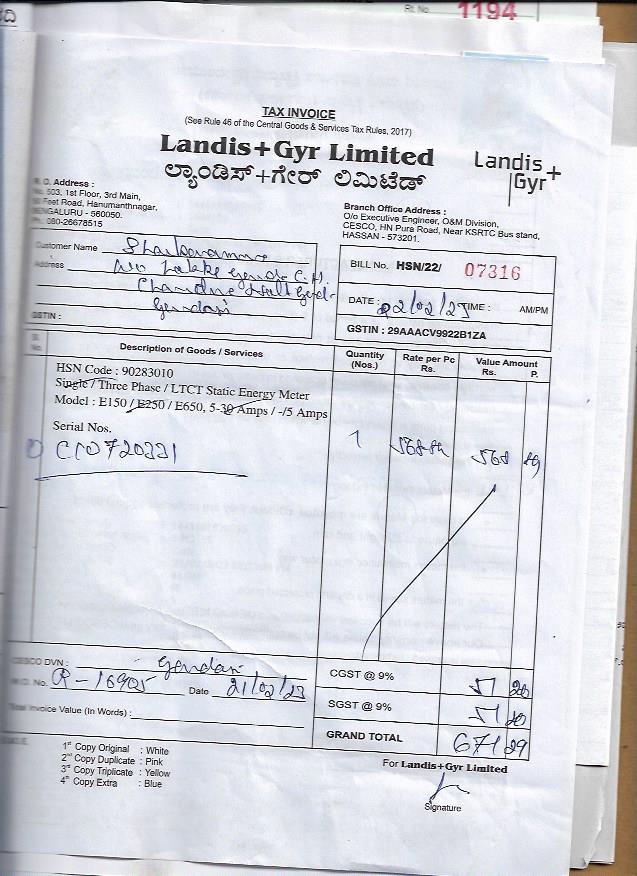 ದಿ
Rt. No. 1194
TAX INVOICE
(See Rule 46 of the Central Goods & Services Tax Rules, 2017)
Landis+Gyr Limited
ಲ್ಯಾಂಡಿಸ್+ಗೇರ್ ಲಿಮಿಟೆಡ್
Landis+
Gyr
R. O. Address :
No. 503, 1st Floor, 3rd Main,
Feet Road, Hanumanthnagar,
BENGALURU - 560050.
Ph. 080-26678515
Branch Office Address :
O/o Executive Engineer, O&M Division,
CESCO, HN Pura Road, Near KSRTC Bus stand,
HASSAN - 573201.
Customer Name
Address W/o
GSTIN :
BILL No. HSN/22/ 07316
DATE : 22/02/23 TIME : AM/PM
GSTIN : 29AAACV9922B1ZA
Sl. No. Description of Goods / Services Quantity (Nos.) Rate per Pc Rs. Value Amount Rs. P.
HSN Code : 90283010
Single / Three Phase / LTCT Static Energy Meter
Model : E150 / E250 / E650, 5-30 Amps / -/5 Amps
Serial Nos.
1 568 568
CESCO DVN :
M.O. No. R-16905 Date 21/02/23
Total Invoice Value (In Words) :
CGST @ 9% 51 20
SGST @ 9% 51 20
GRAND TOTAL 671 29
1st Copy Original : White
2nd Copy Duplicate : Pink
3rd Copy Triplicate : Yellow
4th Copy Extra : Blue
For Landis+Gyr Limited
Signature